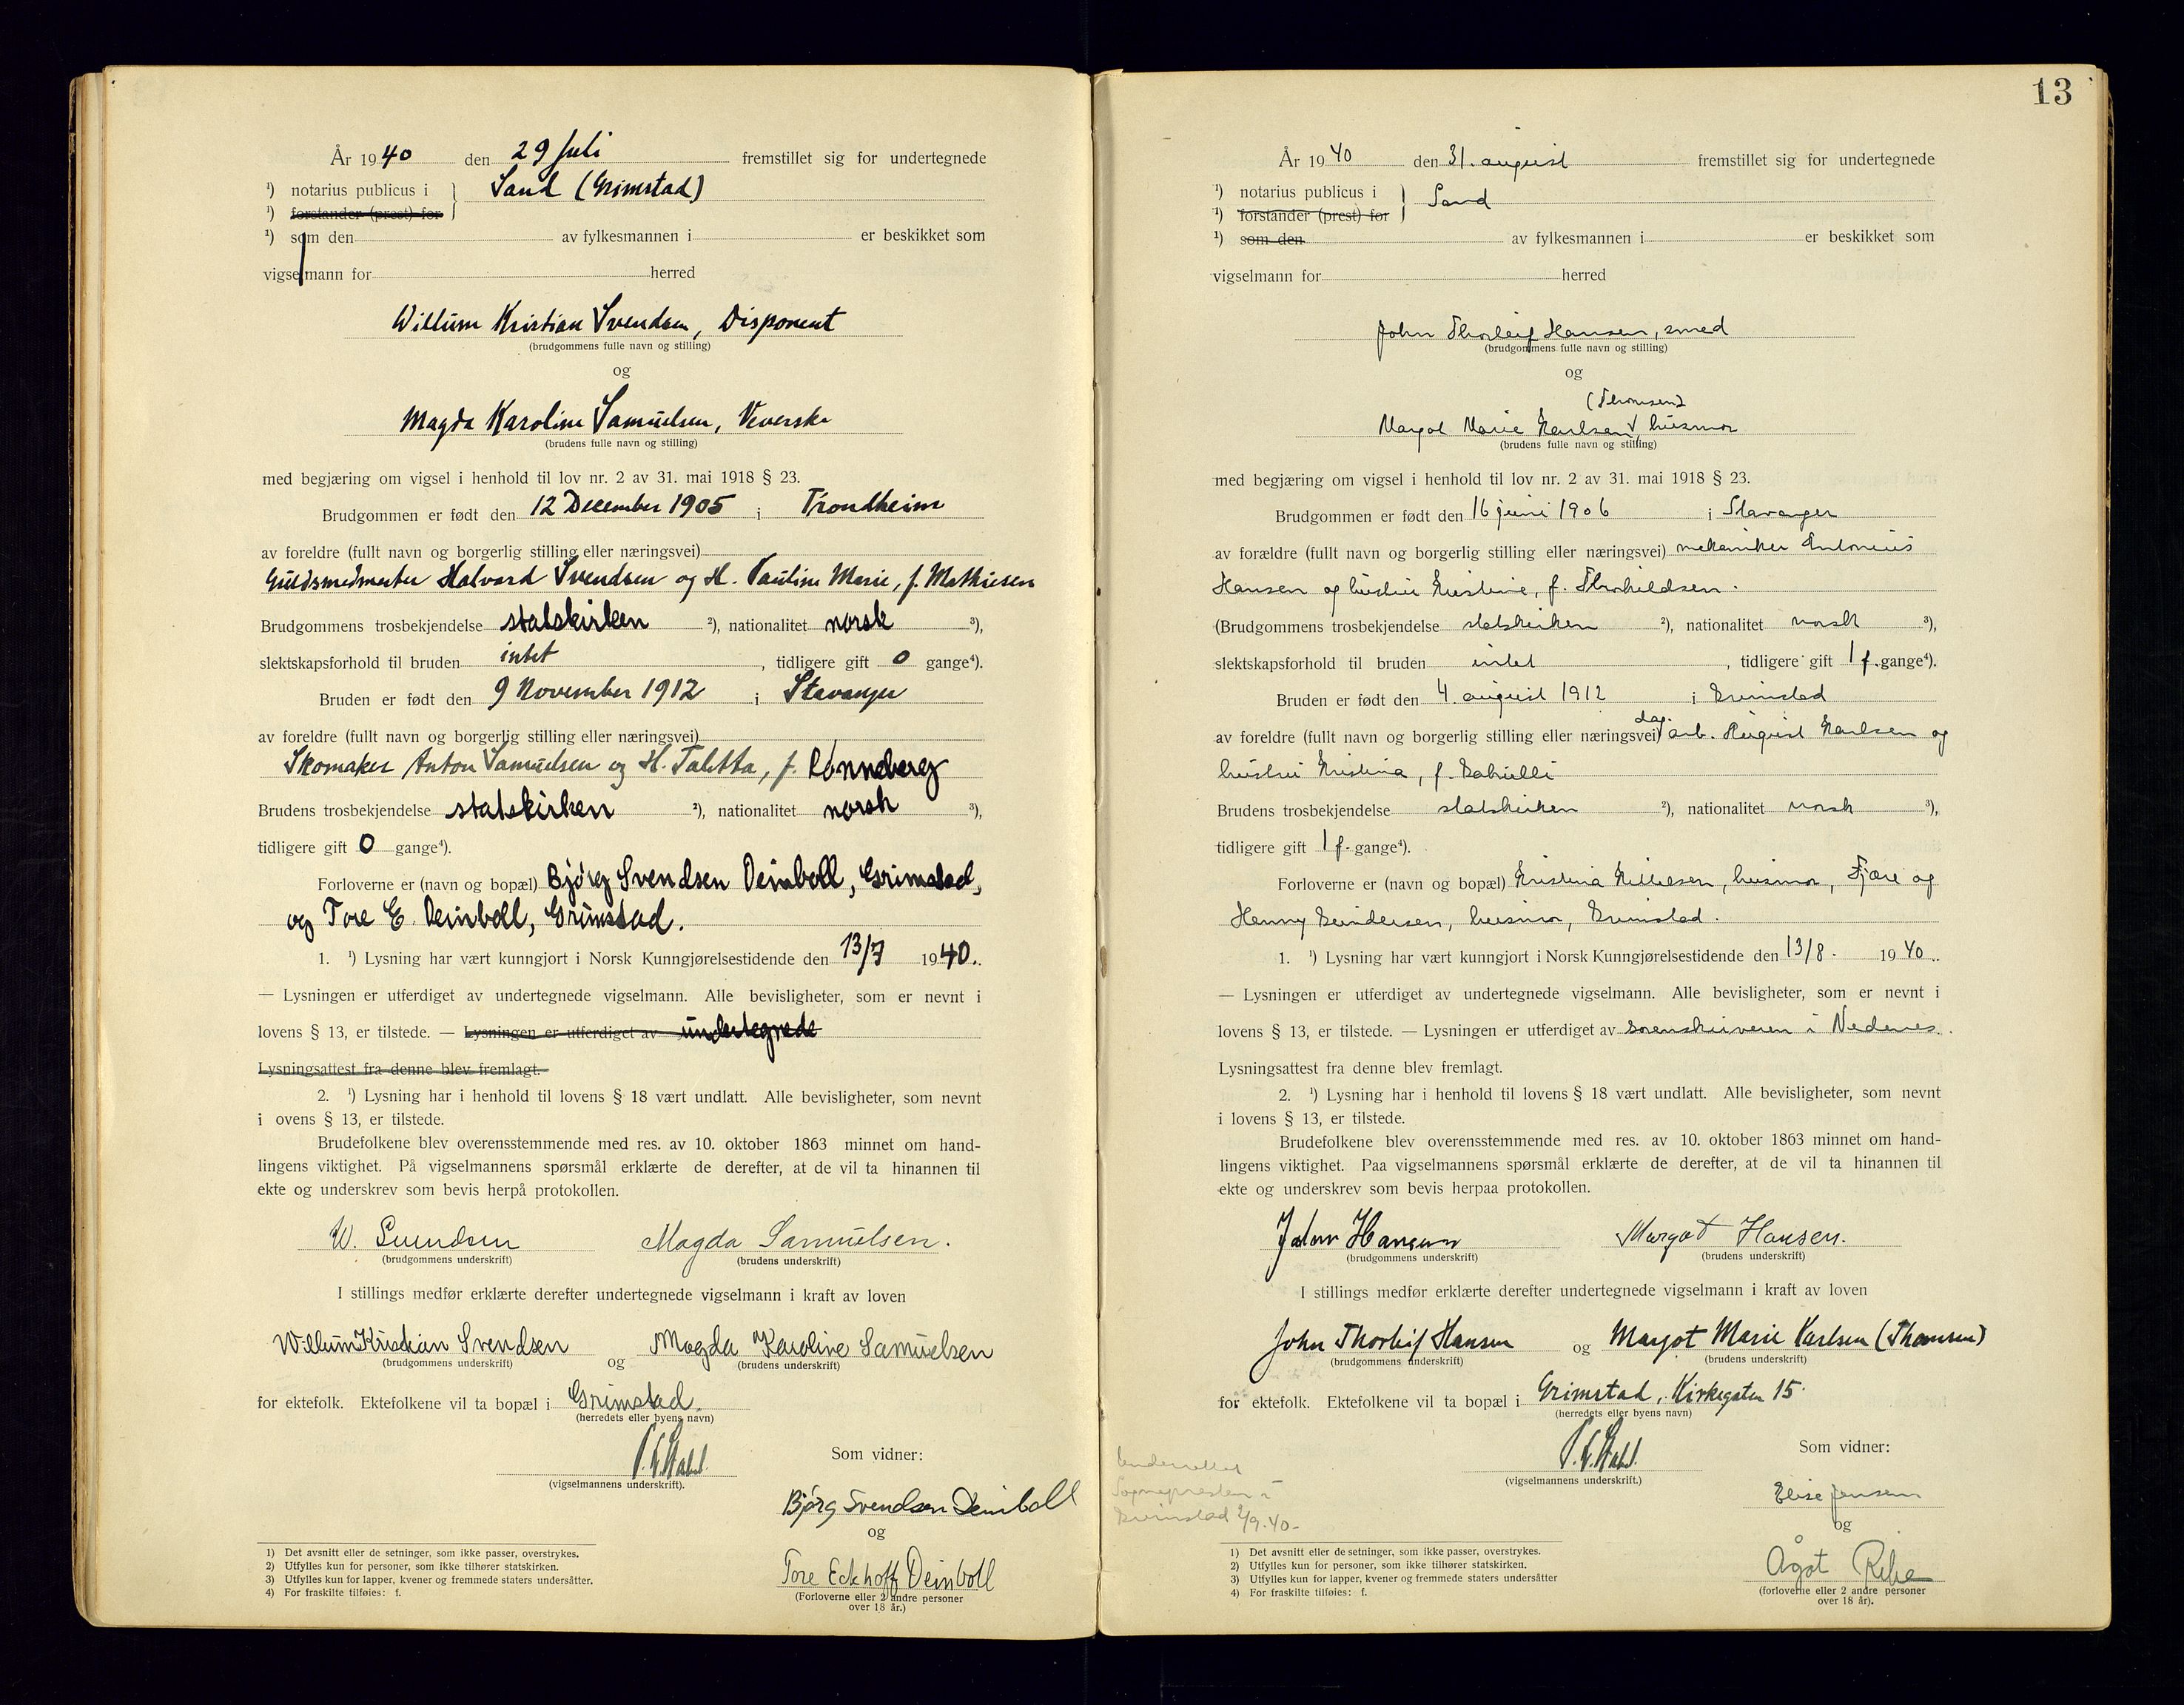 År 1940 den 29 Juli fremstillet sig for undertegnede
¹) notarius publicus i } Sand (Grimstad)
¹) forstander (prest) for
¹) som den av fylkesmannen i er beskikket som
vigselmann for herred
Willum Kristian Svendsen, Disponent
(brudgommens fulle navn og stilling)
og
Magda Karoline Samuelsen, Veverske
(brudens fulle navn og stilling)
med begjæring om vigsel i henhold til lov nr. 2 av 31. mai 1918 § 23.
Brudgommen er født den 12 December 1905 i Trondheim
av foreldre (fullt navn og borgerlig stilling eller næringsvei)
Guldsmedmester Halvard Svendsen og H. Pauline Marie, f. Mathiesen
Brudgommens trosbekjendelse statskirken ²), nationalitet norsk ³),
slektskapsforhold til bruden intet , tidligere gift 0 gange⁴).
Bruden er født den 9 November 1912 i Stavanger
av foreldre (fullt navn og borgerlig stilling eller næringsvei)
Skomaker Anton Samuelsen og H. Taletta, f. Rønneberg
Brudens trosbekjendelse statskirken ²), nationalitet norsk ³),
tidligere gift 0 gange⁴).
Forloverne er (navn og bopæl) Bjørg Svendsen Deinboll, Grimstad,
og Tore E. Deinboll, Grimstad.
1. ¹) Lysning har vært kunngjort i Norsk Kunngjørelsestidende den 13/7 1940.
— Lysningen er utferdiget av undertegnede vigselmann. Alle bevisligheter, som er nevnt i
lovens § 13, er tilstede. — Lysningen er utferdiget av undertegnede
Lysningsattest fra denne blev fremlagt.
2. ¹) Lysning har i henhold til lovens § 18 vært undlatt. Alle bevisligheter, som nevnt
i ovens § 13, er tilstede.
Brudefolkene blev overensstemmende med res. av 10. oktober 1863 minnet om hand-
lingens viktighet. På vigselmannens spørsmål erklærte de derefter, at de vil ta hinannen til
ekte og underskrev som bevis herpå protokollen.
W. Svendsen Magda Samuelsen.
(brudgommens underskrift) (brudens underskrift)
I stillings medfør erklærte derefter undertegnede vigselmann i kraft av loven
Willum Kristian Svendsen og Magda Karoline Samuelsen
(brudgommens underskrift) (brudens underskrift)
for ektefolk. Ektefolkene vil ta bopæl i Grimstad.
(herredets eller byens navn)
Som vidner:
(vigselmannens underskrift).
Bjørg Svendsen Deinboll
og
Tore Eckhoff Deinboll
(Forloverne eller 2 andre personer
over 18 år.)
1) Det avsnitt eller de setninger, som ikke passer, overstrykes.
2) Utfylles kun for personer, som ikke tilhører statskirken.
3) Utfylles kun for lapper, kvener og fremmede staters undersåtter.
4) For fraskilte tilføies: f.
13
År 1940 den 31. august fremstillet sig for undertegnede
¹) notarius publicus i } Sand
¹) forstander (prest) for
¹) som den av fylkesmannen i er beskikket som
vigselmann for herred
John Thorleif Hansen, smed
(brudgommens fulle navn og stilling)
og
(Thomsen)
Margot Marie Karlsen, husmor
(brudens fulle navn og stilling)
med begjæring om vigsel i henhold til lov nr. 2 av 31. mai 1918 § 23.
Brudgommen er født den 16 juni 1906 i Stavanger
av forældre (fullt navn og borgerlig stilling eller næringsvei) mekaniker Antonius
Hansen og hustru Kristine, f. Thorkildsen.
(Brudgommens trosbekjendelse statskirken ²), nationalitet norsk ³),
slektskapsforhold til bruden intet , tidligere gift 1 f. gange⁴).
Bruden er født den 4. august 1912 i Grimstad
av foreldre (fullt navn og borgerlig stilling eller næringsvei) dag. arb. August Karlsen og
hustru Kristina, f.
Brudens trosbekjendelse statskirken ²), nationalitet norsk ³),
tidligere gift 1 f. gange⁴).
Forloverne er (navn og bopæl) Kristina , husmor, Fjære og
Henny Gundersen, husmor, Grimstad.
1. ¹) Lysning har vært kunngjort i Norsk Kunngjørelsestidende den 13/8. 1940.
— Lysningen er utferdiget av undertegnede vigselmann. Alle bevisligheter, som er nevnt i
lovens § 13, er tilstede. — Lysningen er utferdiget av sorenskriveren i Nedenes.
Lysningsattest fra denne blev fremlagt.
2. ¹) Lysning har i henhold til lovens § 18 vært undlatt. Alle bevisligheter, som nevnt
i lovens § 13, er tilstede.
Brudefolkene blev overensstemmende med res. av 10. oktober 1863 minnet om hand-
lingens viktighet. Paa vigselmannens spørsmål erklærte de derefter, at de vil ta hinannen til
ekte og underskrev som bevis herpaa protokollen.
John Hansen Margot Hansen.
(brudgommens underskrift) (brudens underskrift)
I stillings medfør erklærte derefter undertegnede vigselmann i kraft av loven
John Thorleif Hansen og Margot Marie Karlsen (Thomsen)
(brudgommens underskrift) (brudens underskrift)
for ektefolk. Ektefolkene vil ta bopæl i Grimstad, Kirkegaten 15.
(herredets eller byens navn)
Som vidner:
(vigselmannens underskrift.)
Underrettet
Sognepresten i
Grimstad 2/9.40.
Elise Jensen
og
Ågot Ribe
(forloverne eller 2 andre personer
over 18 år).
1) Det avsnitt eller de setninger, som ikke passer, overstrykes.
2) Utfylles kun for personer, som ikke tilhører statskirken.
3) Utfylles kun for lapper, kvener og fremmede staters undersåtter
4) For fraskilte tilføies: f.